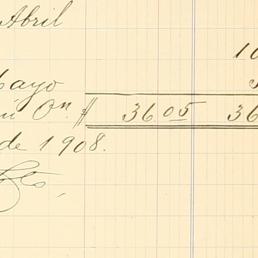 Abril
10
ayo
On $ 36.05 36
de 1908.